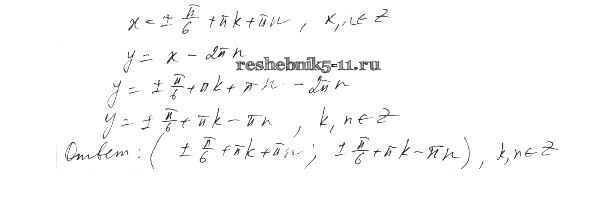 x = ± π/6 + πk + πn, k, n ∈ Z
y = x − 2πn
reshebnik5-11.ru
y = ± π/6 + πk + πn − 2πn
y = ± π/6 + πk − πn, k, n ∈ Z
Ответ: ( ± π/6 + πk + πn; ± π/6 + πk − πn ), k, n ∈ Z